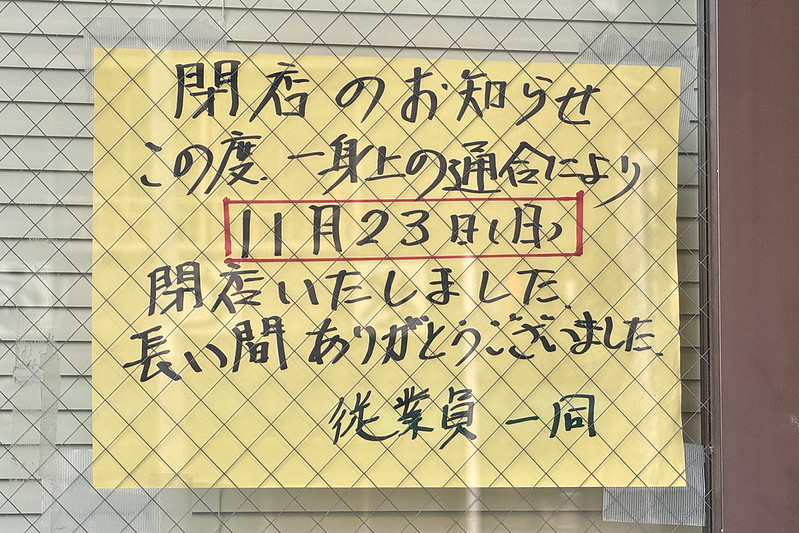 閉店のお知らせ
この度、一身上の通合により
11月23日(月)
閉店いたしました。
長い間ありがとうございました。
従業員一同